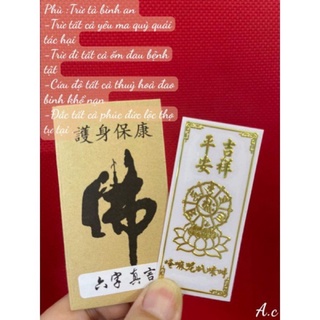 Phù :Trừ tà bình an
-Trừ tất cả yêu ma quỷ quái
tác hại
-Trừ đi tất cả ốm đau bệnh
tật
-Cứu độ tất cả thuỷ hoả đao
binh khổ nạn
-Đắc tất cả phúc đức lộc thọ
tự tại
護身保康
佛
六字真言
吉祥
平安
A.c